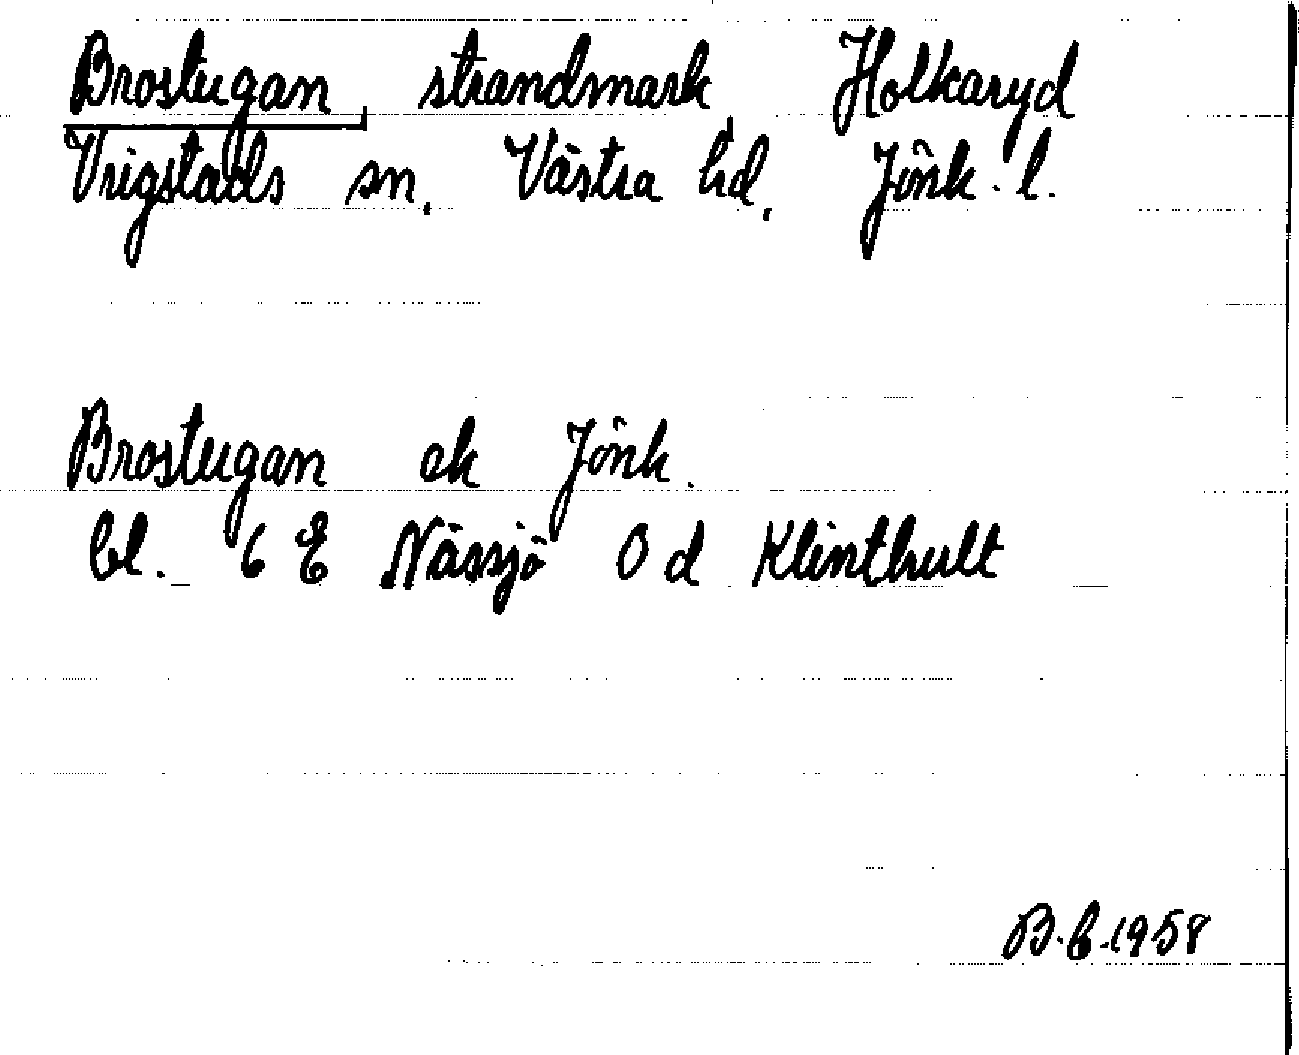 Brostugan, strandmark Holkaryd
Vrigstads sn. Västra hd. Jönk. l.
Brostugan ek Jönk.
bl. 6 E Nässjö 0 d Klinthult
B.E.1958